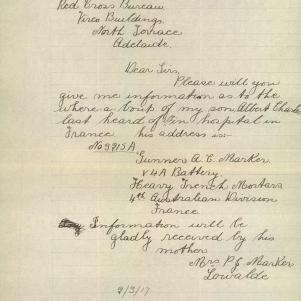 Red Cross Bureau
Verco Buildings
North Terrace
Adelaide.
Dear Sirs,
Please will you
give me information as to the
where a bouts of my son Albert Charles
last heard of in hospital in
France his address is-
No 3915A
Gunner A. C. Marker
V4A Battery
Heavy Trench Mortars
4th Australian Division
France
Information will be
gladly received by his
mother
Mrs P J Marker
Lowalde
9/3/17